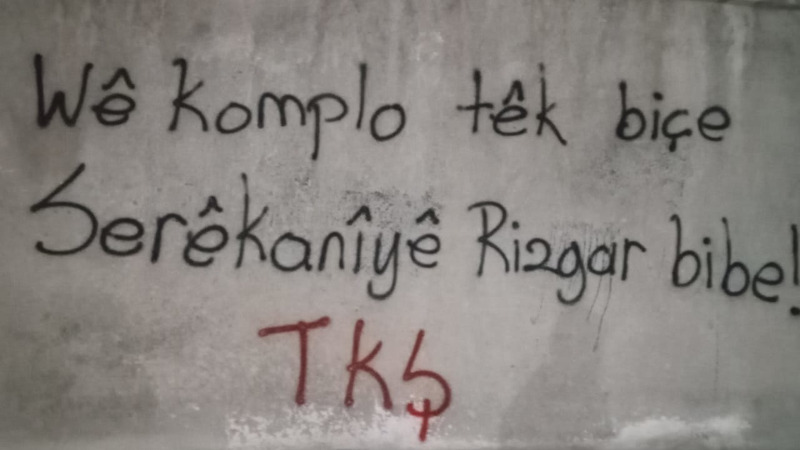 Wê komplo têk biçe
Serêkanîyê Rizgar bibe!
TKŞ